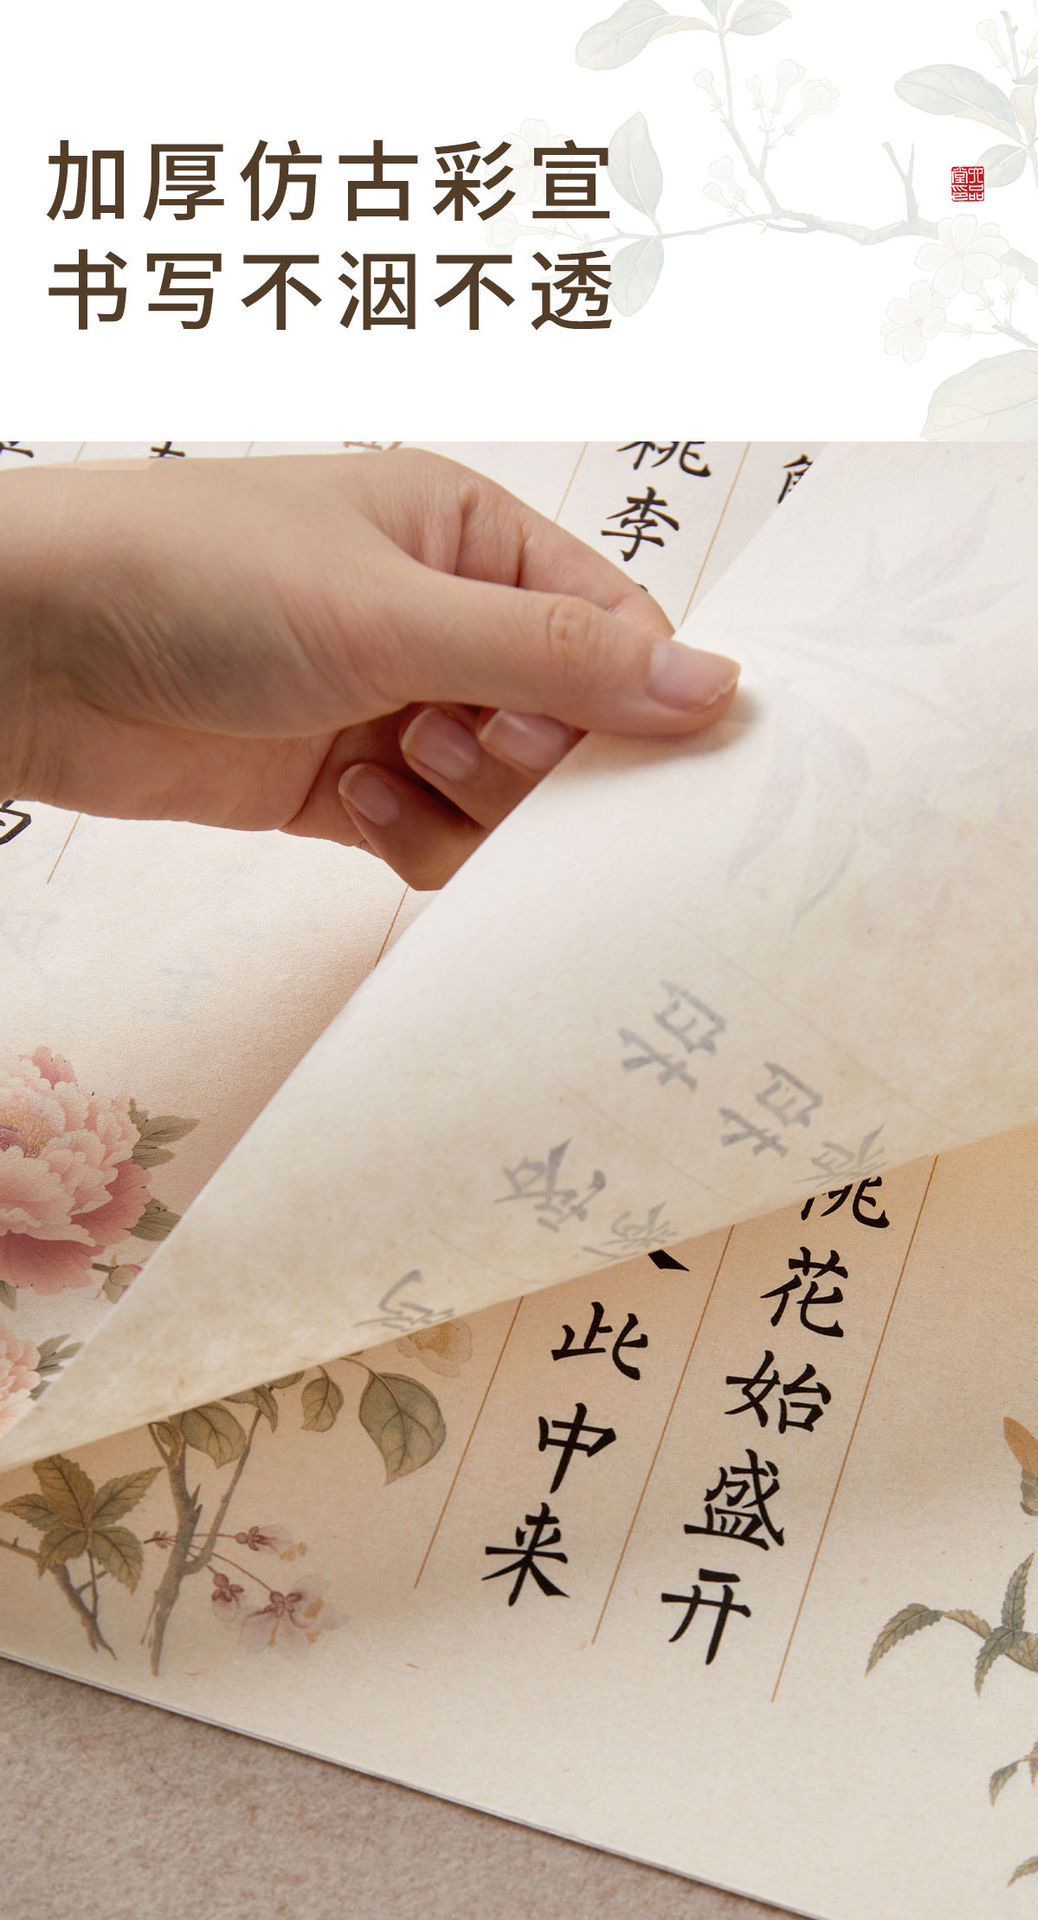 加厚仿古彩宣
书写不洇不透
六品堂印
桃李
桃花始盛开
此中来